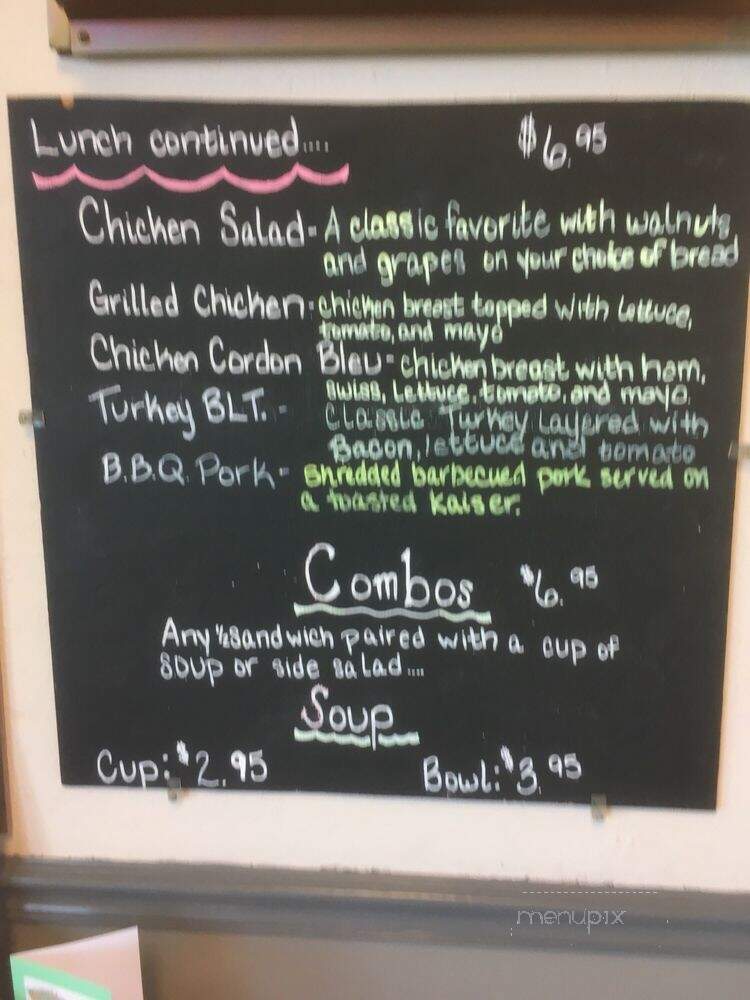 Lunch continued.... $6.95
Chicken Salad- A classic favorite with walnuts,
and grapes on your choice of bread
Grilled Chicken- chicken breast topped with lettuce,
tomato, and mayo
Chicken Cordon Bleu- chicken breast with ham,
swiss, lettuce, tomato, and mayo
Turkey BLT. - Classic Turkey layered with
Bacon, lettuce and tomato
B.B.Q. Pork- shredded barbecued pork served on
a toasted kaiser.
Combos $6.95
Any ½ sandwich paired with a cup of
soup or side salad....
Soup
Cup: $2.95 Bowl: $3.95
menupix